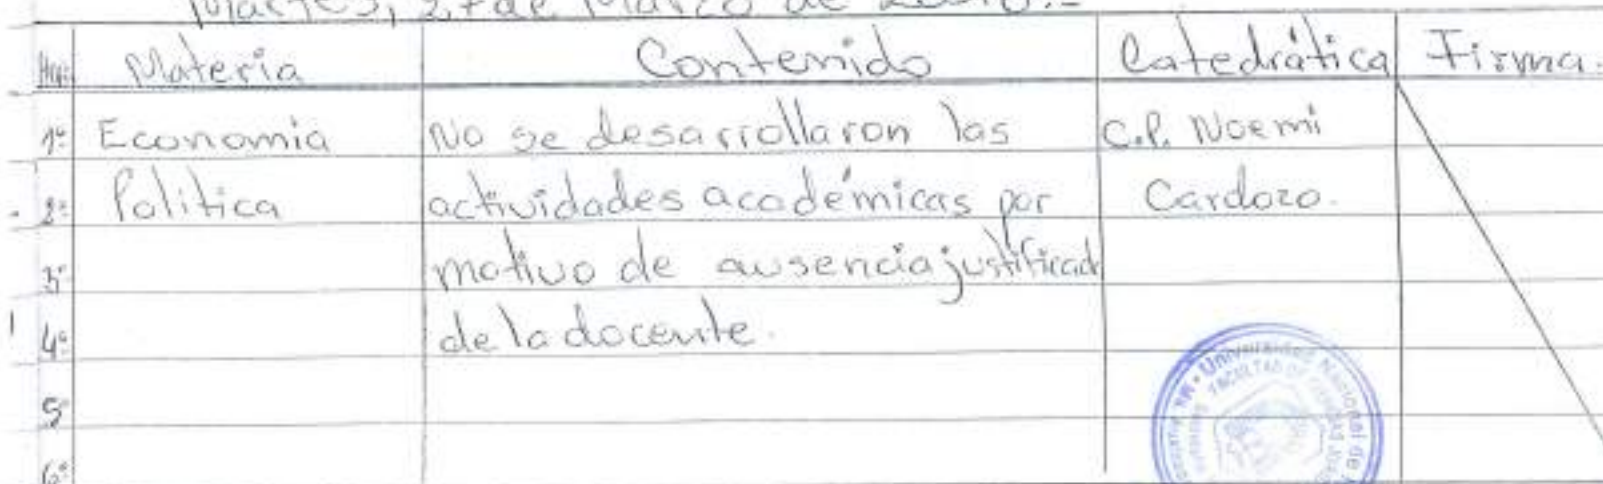 Martes, 27 de Marzo de
Hra: Materia Contenido Catedrática Firma.
1º Economia No se desarrollaron las C.P. Noemi
2º Politica actividades académicas por Cardozo.
3º motivo de ausencia justificad
4º de la docente.
5º
6º
Universidad Nacional de
FACULTAD DE